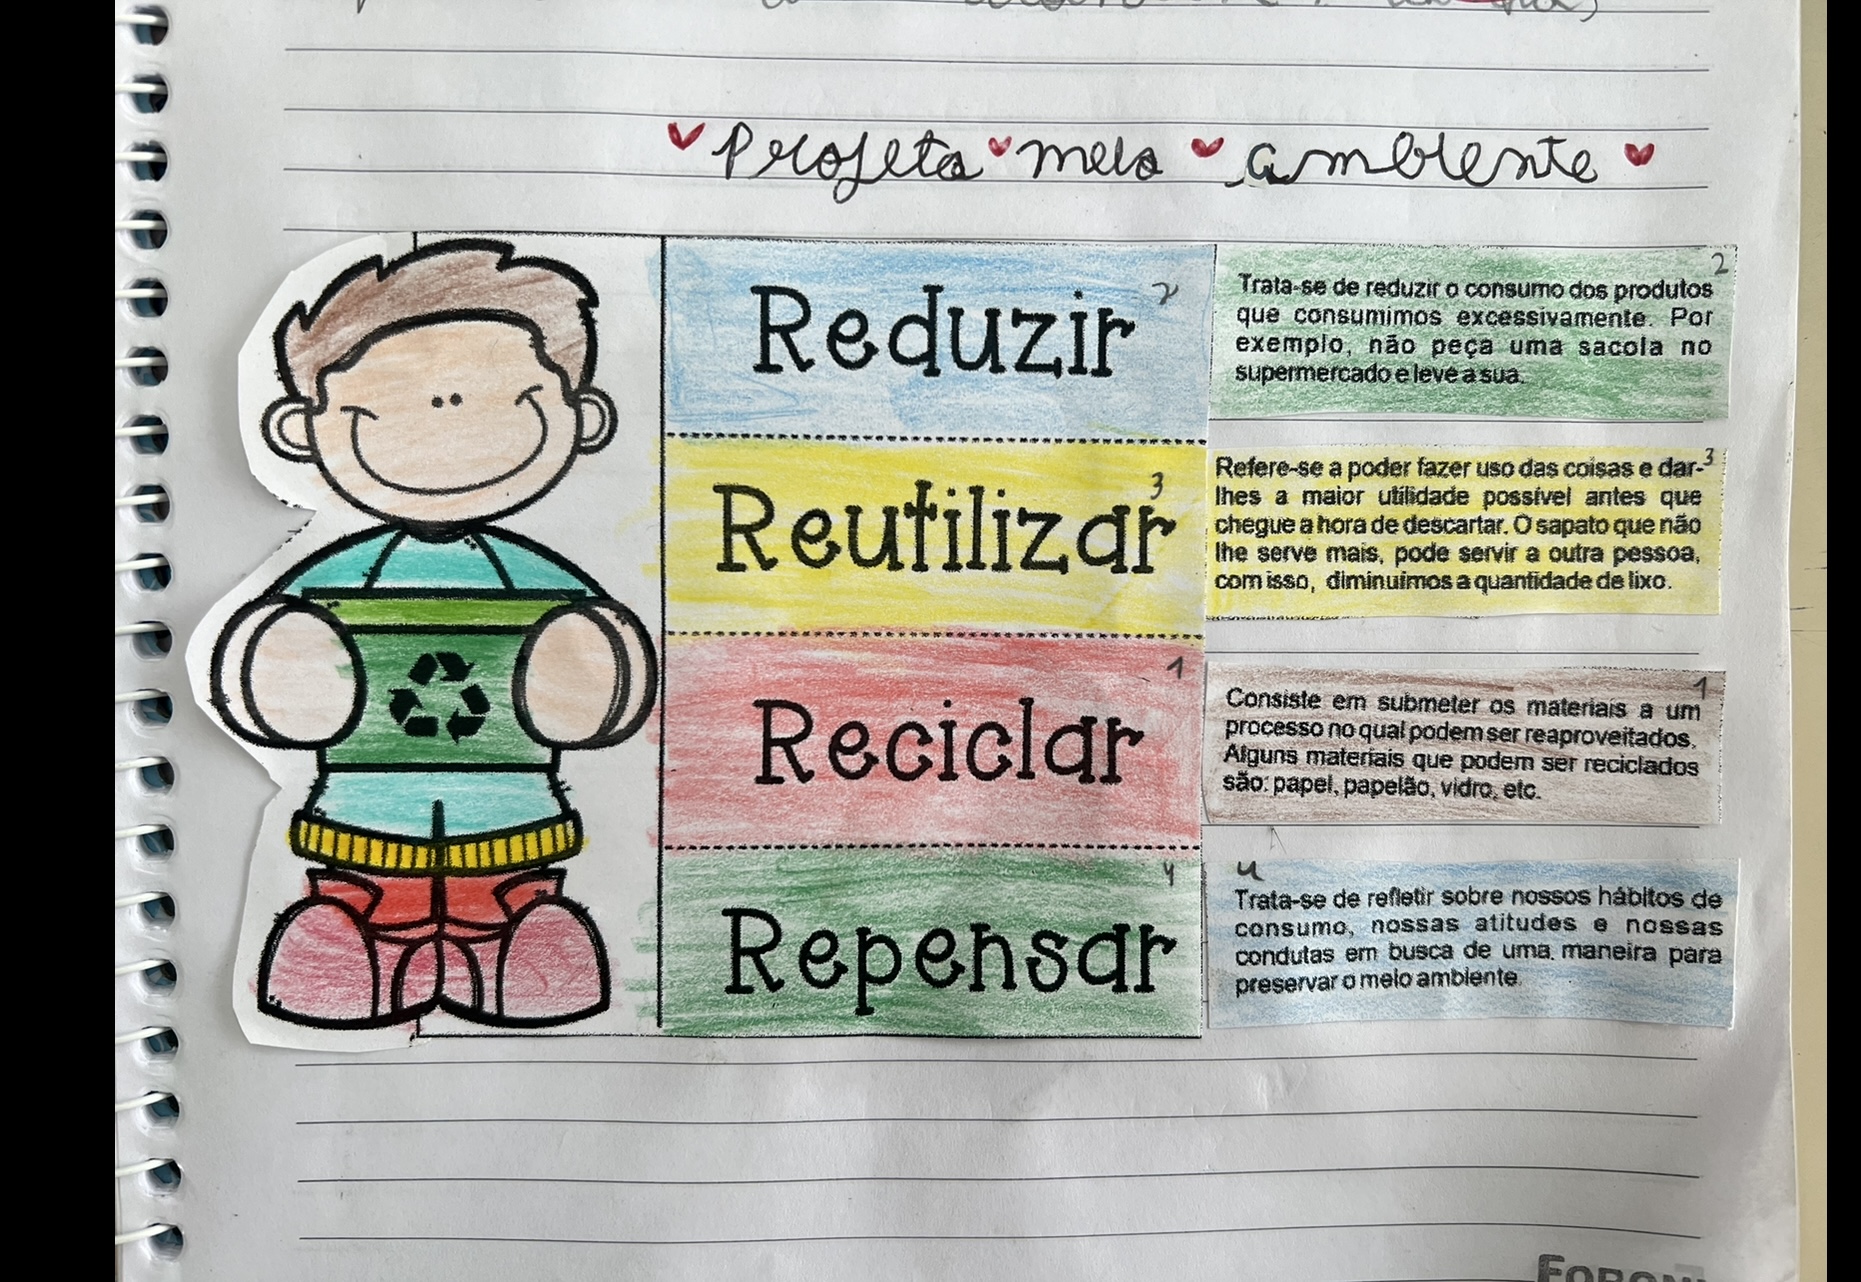 Projeto meio ambiente
Reduzir 2
2
Trata-se de reduzir o consumo dos produtos
que consumimos excessivamente. Por
exemplo, não peça uma sacola no
supermercado e leve a sua.
Reutilizar 3
Refere-se a poder fazer uso das coisas e dar- 3
lhes a maior utilidade possível antes que
chegue a hora de descartar. O sapato que não
lhe serve mais, pode servir a outra pessoa,
com isso, diminuímos a quantidade de lixo.
Reciclar 1
1
Consiste em submeter os materiais a um
processo no qual podem ser reaproveitados.
Alguns materiais que podem ser reciclados
são: papel, papelão, vidro, etc.
Repensar 4
4
Trata-se de refletir sobre nossos hábitos de
consumo, nossas atitudes e nossas
condutas em busca de uma maneira para
preservar o meio ambiente.